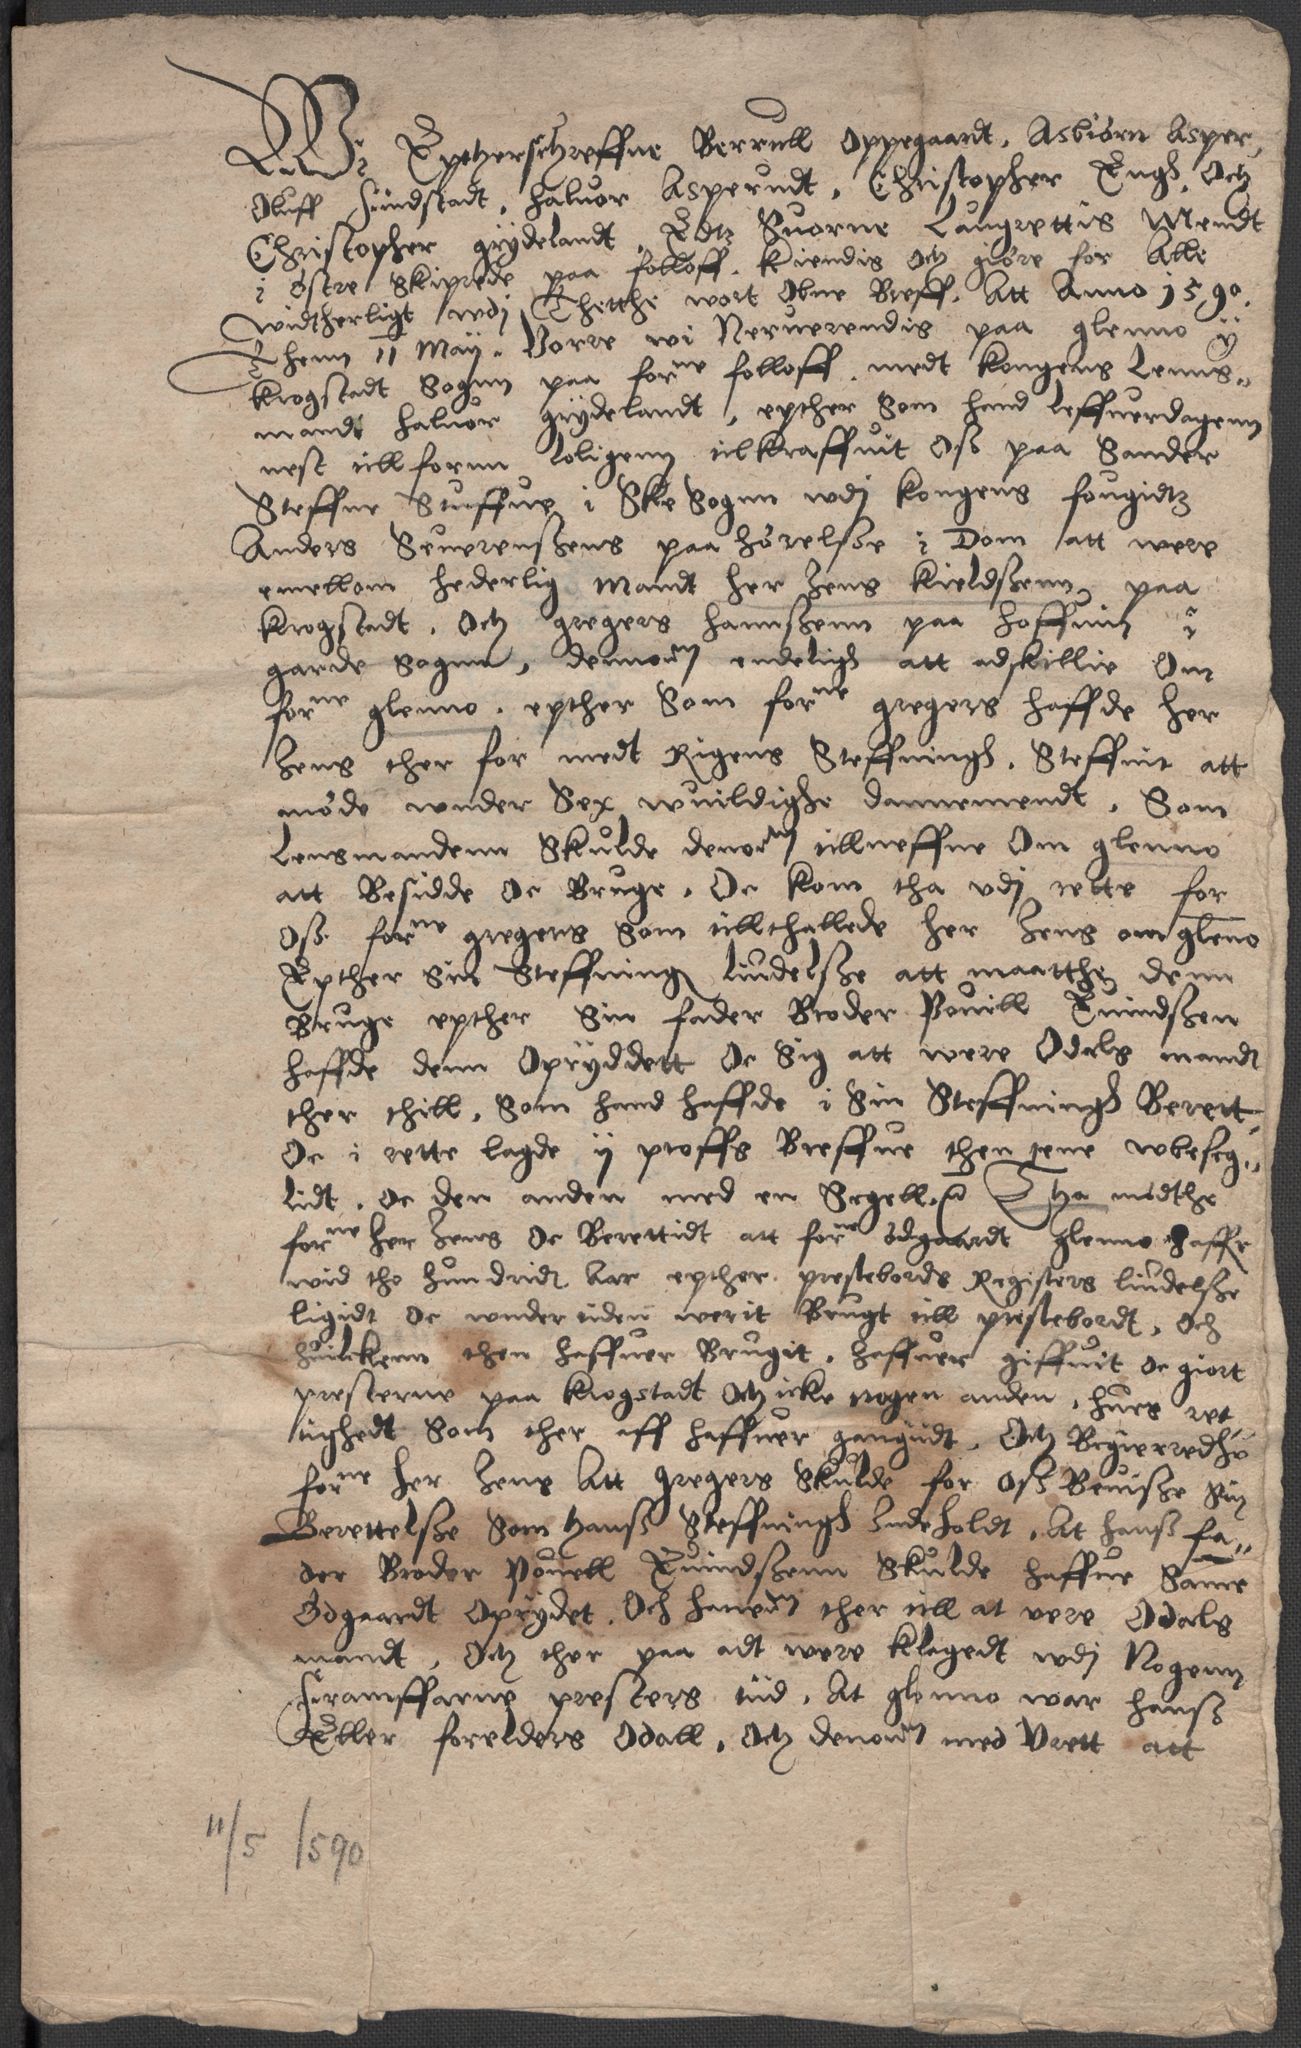 Wi Epttherschreffne Berrull Oppegaardt, Asbiörn Asper,
Oluff Sundstadt, Haluor Asperudt, Christopher Engh, Och
Christopher grydelandt, Edtz Suorne Laugrettis Mendt
i östre Skiprede paa folloff, kiendis Och giöre for Alle
widtherligt wdj Thetthe wort Obne Breff, Att Anno 1590.
Thenn 11 Maij. Vorre wi Neruerendis paa glenno ij
krogstadt Sognn paa forne folloff, medt kongens Lenns„
mandt Haluor grydelandt, epther Som hand Leffuerdagenn
nest till fornn loligenn tilkraffuit Oss paa Sander
Steffne Stuffue i Ske Sognn wdj kongens fougidtz
Anders Seuerenssens paa hörelsse i Dom att were
emellom hederlig Mandt her Jens kieldssenn paa
krogstadt, Och gregers hannssenn paa hoffuin i
garde Sognn, dennom endeligh att adskillie Om
forne glenno, epther Som forne gregers haffde her
Jens ther for medt Rigens Steffningh, Steffnit att
möde wnder Sex wuildighe dannemendt, Som
Lensmandenn Skulde denom tillneffne Om glenno
att Besidde Oc Bruge, Oc kom tha vdj rette for
Oss forne gregers Som tillthallede her Jens om gleno
Epther Sin Steffning liudelsse att maatthe denn
Bruge epther Sin fader Broder Pouill Euindssen
haffde denn Opryddett Oc Sig att were Odels mandt
ther thill, Som hand haffde i Sin Steffningh Berett,
Oc i rette lagde ij proffs Breffue then ene wbeseg„
lidt, Oc den anden med en Segell. Tha mödthe
forne her Jens Oc Berettidt att forne ödgaardt glenno haffr
wid tho hundridt Aar epther prestebords Registers liudelsse
ligidt Oc wnder tiden werit Brugt till prestebordt, Och
huilckenn then haffuer Brugit, haffuer giffuit oc giort
presterne paa krogstadt Och icke nogen anden, hues ret
tighedt Som ther aff haffuer gangidt, Och Begierredhe
forne her Jens Att gregers Skulde for Oss Beuisse Sin
Berettelsse Som hanss Steffningh Indeholdt, At hanss fa„
der Broder Pouell Euindssenn Skulde haffue Same
Ödgaardt Oprydet, Och hanom ther till at vere Odels
mandt, Och ther paa adt were klagedt wdj Nogenn
framffarne presters tiid, At glenno war hanss
Eller forelders Odall, Och denom med Vrett att
11/5 1590